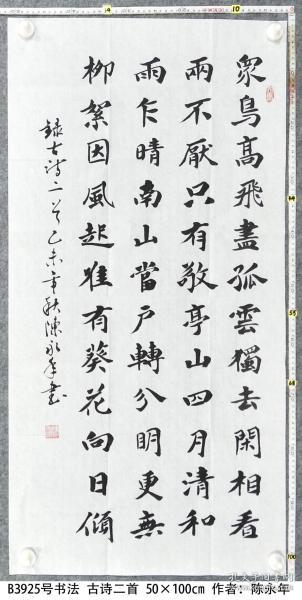 眾鳥高飛盡孤雲獨去閑相看
兩不厭只有敬亭山四月清和
雨乍晴南山當户轉分明更無
柳絮因風起惟有葵花向日傾
錄古诗二首乙未重秋陳永年書
B3925号书法 古诗二首 50×100cm 作者：陈永年